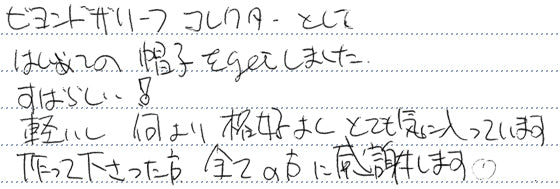 ビヨンドザリーフ コレクターとして
はじめての 帽子をgetしました.
すばらしい!
軽いし 何より 格好よく とても気に入っています
作って下さった方 全ての方に感謝します